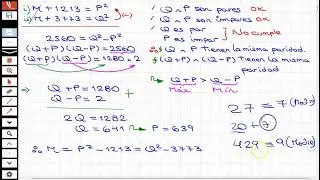 M + 1213 = P²
M + 3773 = Q²
(-)
2560 = Q² - P²
(Q+P)(Q-P) = 2560
(Q+P)(Q-P) = 1280 × 2
Q+P = 1280
Q-P = 2
2Q = 1282
Q = 641 → P = 639
∴ M = P² - 1213 = Q² - 3773
Q ∧ P son pares OK
Q ∧ P son impares OK
Q es par
P es impar
No cumple
Q ∧ P Tienen la misma paridad.
(Q+P) ∧ (Q-P) Tienen la misma paridad
Q+P > Q-P
Máx Mín
27 = 7 (Mod10)
20 + 7
429 = 9 (Mod10)